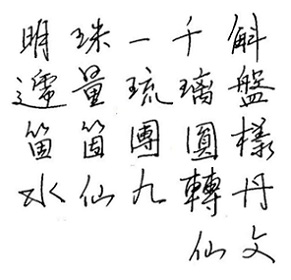 明珠一千斛
量琉璃盤
箇箇團圓樣
水仙九轉丹
仙文